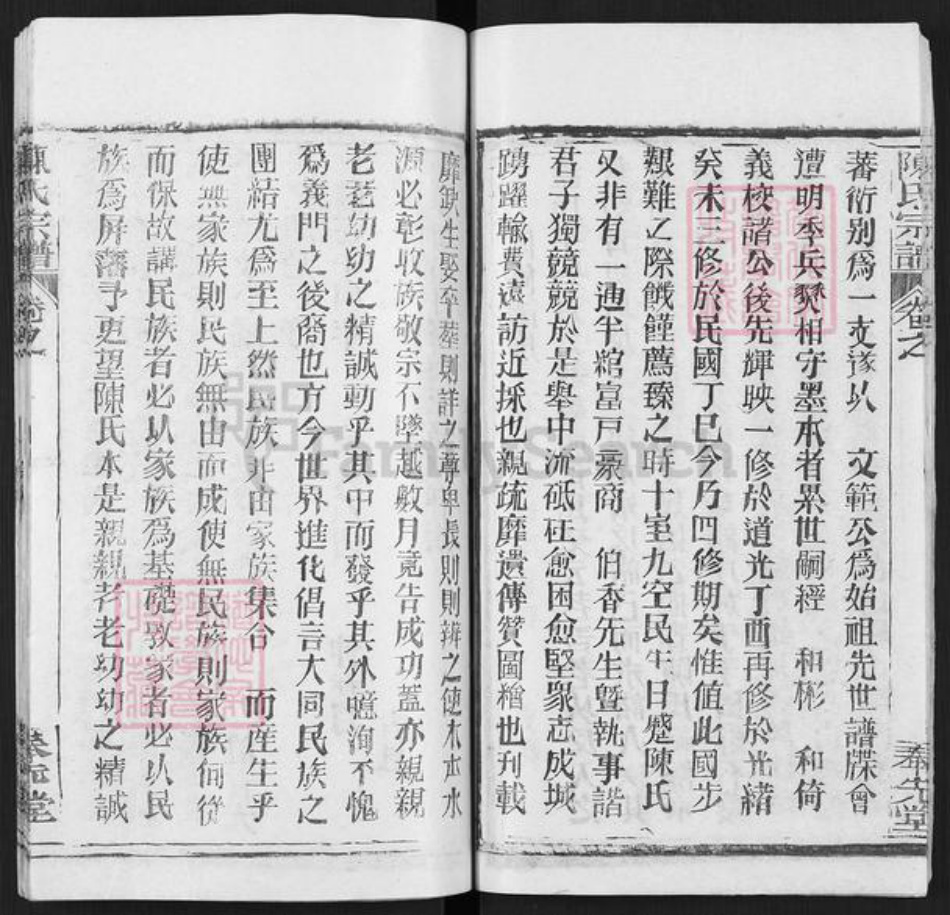 陳氏宗譜
卷之
奉先堂
蕃衍別爲一支遂以 文範公爲始祖先世譜牒會
遭明季兵燹相守墨本者累世嗣經 和彬 和倚
義校諸公後先輝映一修於道光丁酉再修於光緒
癸未三修於民國丁巳今乃四修期矣惟值此國步
艱難之際饑饉薦臻之時十室九空民生日蹙陳氏
又非有一通半綰富戸豪商 伯香先生曁執事諧
君子獨兢兢於是舉中流砥砫愈困愈堅眾志成城
踴躍輸費遠訪近採也親疏靡遺傳贊圖繪也刊載
靡缺生娶卒塟則詳之尊卑長則則辨之使木本水
源必彰收族敬宗不墜越數月竟告成功蓋亦親親
老老幼幼之精誠動乎其中而發乎其外噫洵不愧
爲義門之後裔也方今世界進化倡言大同民族之
團結尤爲至上然民族非由家族集合 而產生乎
使無家族則民族無由而成使無民族則家族何從
而保故講民族者必以家族爲基礎敦家者必以民
族爲屏藩予更望陳氏本是親親老老幼幼之精誠
陳氏宗譜
奉先堂
FamilySearch